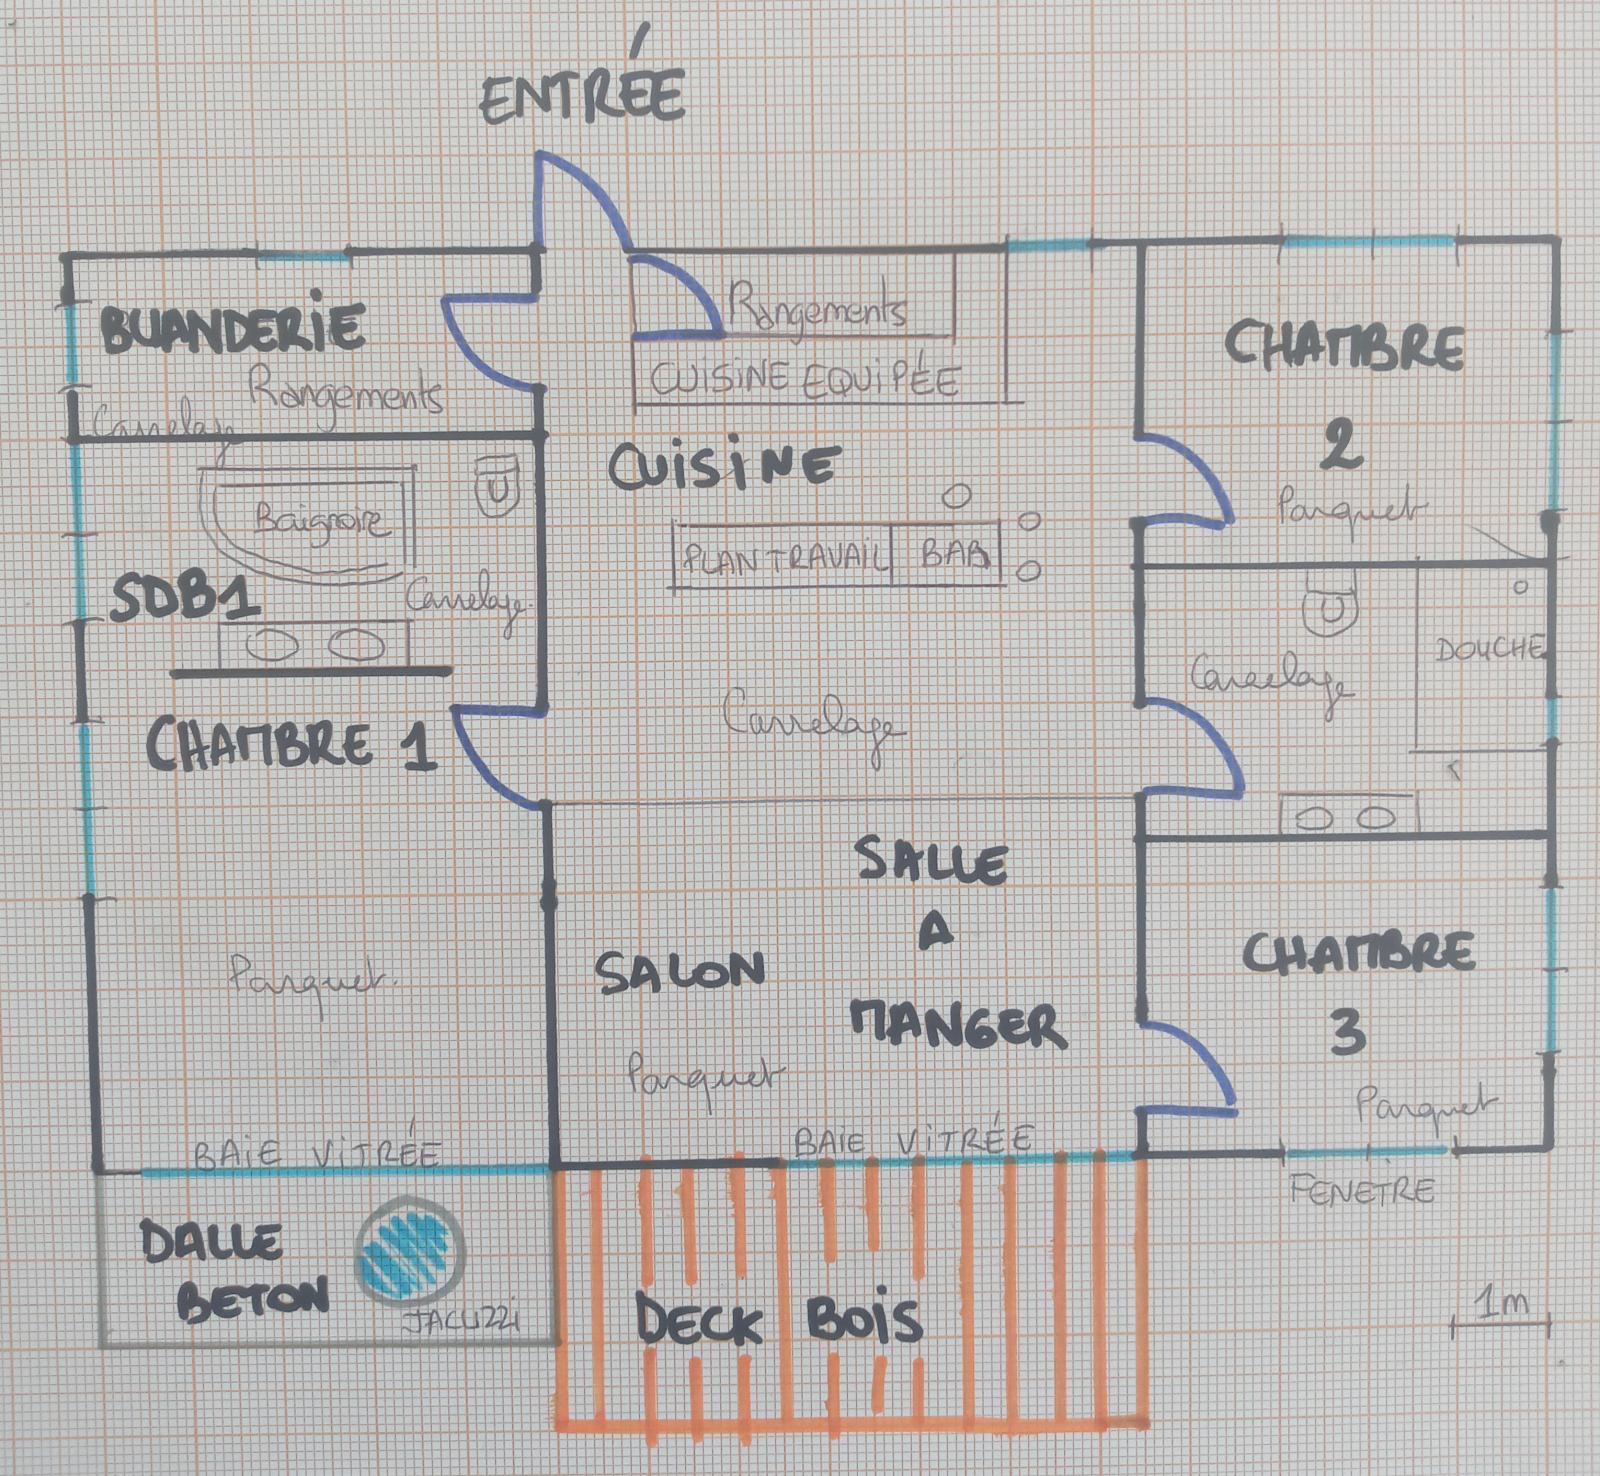 ENTRÉE
BUANDERIE
Rangements
Carrelage
Rangements
CUISINE EQUIPÉE
CUISINE
PLAN TRAVAIL
BAR
Carrelage
CHAMBRE
2
Parquet
Baignoire
SDB1
Carrelage
CHAMBRE 1
Parquet
Carrelage
DOUCHE
SALLE
A
MANGER
SALON
Parquet
CHAMBRE
3
Parquet
BAIE VITRÉE
BAIE VITRÉE
FENETRE
DALLE
BETON
JACUZZI
DECK BOIS
1m